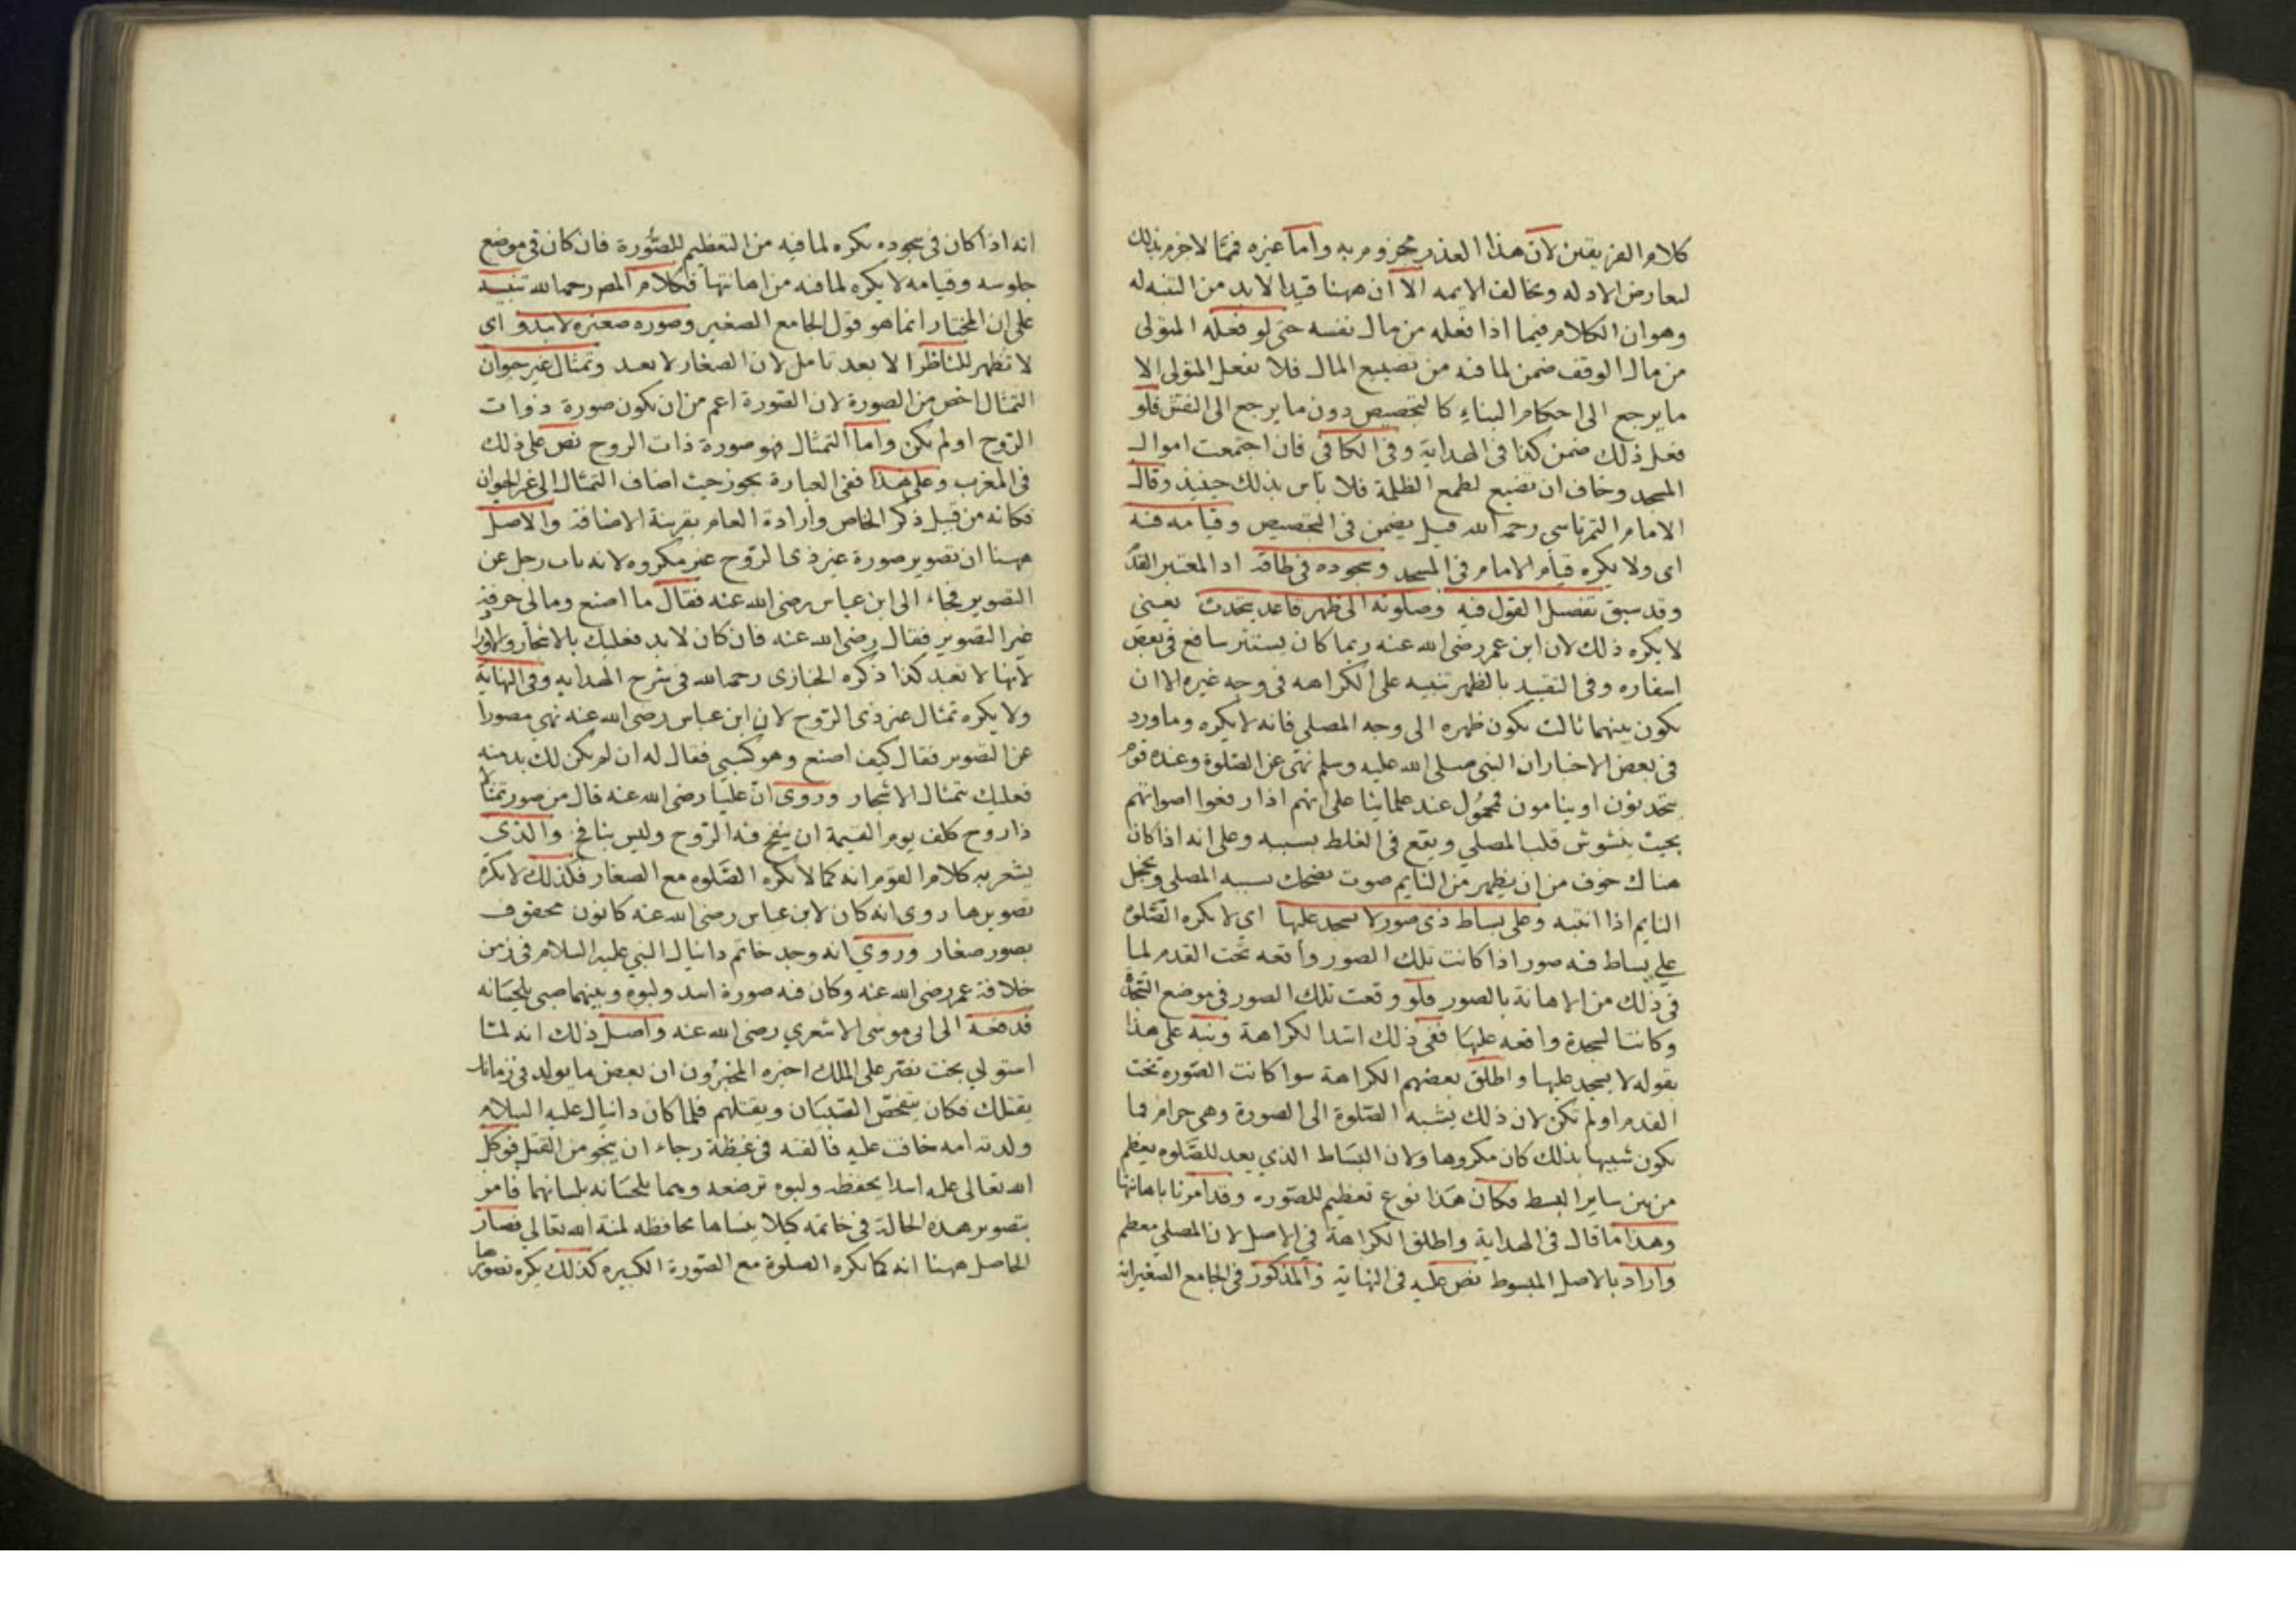 كلام الفريقين لان هذا العذر مجزوم به واما غيره فمما لا جزم بذلك
لتعارض الادله وتخالف الايمه الا ان ههنا قيدا لا بد من التنبه له
وهو ان الكلام فيما اذا فعله من مال نفسه حتى لو فعله المتولى
من مال الوقف ضمن لما فيه من تضييع المال فلا يفعل المتولى الا
ما يرجع الى احكام البناء كالتجصيص دون ما يرجع الى النقش فلو
فعل ذلك ضمن كذا فى الهداية وفى الكافى فان اجتمعت اموال
المسجد وخاف ان تضيع لطمع الظلمة فلا باس بذلك حينيذ وقال
الامام التمرتاسى رحمه الله قيل يضمن فى التجصيص وقيامه فيه
اى ولا يكره قيام الامام فى المسجد وسجوده فى طاقه اذ المعتبر القدم
وقد سبق تفصيل القول فيه وصلوته الى ظهر قاعد يتحدث يعنى
لا يكره ذلك لان ابن عمر رضى الله عنه ربما كان يستتر بنافع فى بعض
اسفاره وفى التقييد بالظهر تنبيه على الكراهه فى وجه غيره الا ان
يكون بينهما ثالث يكون ظهره الى وجه المصلى فانه لا يكره وما ورد
فى بعض الاخبار ان النبى صلى الله عليه وسلم نهى عن الصلوة وعنده قوم
يتحدثون او ينامون فمحمول عند علمائنا على انهم اذا رفعوا اصواتهم
بحيث يشوش قلب المصلي ويقع فى الغلط بسببه وعلى انه اذا كان
هناك خوف من ان يظهر من النايم صوت يضحك بسببه المصلى ويخجل
النايم اذا انتبه وعلى بساط ذى صور لا يسجد عليها اى لا يكره الصلوة
على بساط فيه صور اذا كانت تلك الصور واقعه تحت القدم لما
فى ذلك من الاهانة بالصور فلو وقعت تلك الصور فى موضع السجدة
وكانت السجدة واقعه عليها ففى ذلك اشد الكراهة ونبه على هذا
بقوله لا يسجد عليها واطلق بعضهم الكراهة سوا كانت الصوره تحت
القدم او لم تكن لان ذلك يشبه الصلوة الى الصورة وهى حرام فما
يكون شبيها بذلك كان مكروها ولان البساط الذي يعد للصلوه يعظم
من بين ساير البسط فكان هذا نوع تعظيم للصوره وقد امرنا باهانتها
وهذا ما قال فى الهداية واطلق الكراهة فى الاصل لان المصلي معظم
واراد بالاصل المبسوط نص عليه فى النهاية والمذكور فى الجامع الصغير انه
انه اذا كان فى سجوده يكره لما فيه من التعظيم للصورة فان كان فى موضع
جلوسه وقيامه لا يكره لما فيه من اهانتها فكلام المص رحمه الله تنبيه
على ان المختار انما هو قول الجامع الصغير وصوره صغيره لا تبدو اى
لا تظهر للناظر الا بعد تامل لان الصغار لا يعبد وتمثال غير حيوان
التمثال اخص من الصورة لان الصورة اعم من ان يكون صورة ذوات
الروح او لم يكن واما التمثال فهو صورة ذات الروح نص على ذلك
فى المغرب وعلى هذا ففى العبارة تجوز حيث اضاف التمثال الى غير الحيوان
فكانه من قبيل ذكر الخاص وارادة العام بقرينة الاضافة والاصل
ههنا ان تصوير صورة غير ذى الروح غير مكروه لانه تاب رجل عن
التصوير فجاء الى ابن عباس رضى الله عنه فقال ما اصنع ومالى حرفة
غير التصوير فقال رضى الله عنه فان كان لا بد فعليك بالاشجار
لانها لا تعبد كذا ذكره الخبازى رحمه الله فى شرح الهدايه وفى النهاية
ولا يكره تمثال غير ذى الروح لان ابن عباس رضى الله عنه نهى مصورا
عن التصوير فقال كيف اصنع وهو كسبى فقال له ان لم يكن لك بد منه
فعليك بتمثال الاشجار وروى ان عليا رضى الله عنه قال من صور تمثالا
ذا روح كلف يوم القيمة ان ينفخ فيه الروح وليس بنافخ والذى
يشعر به كلام القوم انه كما لا يكره الصلوه مع الصغار فكذلك لا يكره
تصويرها روى انه كان لابن عباس رضى الله عنه كانون محفوف
بصور صغار وروي انه وجد خاتم دانيال النبي عليه السلام فى زمن
خلافة عمر رضى الله عنه وكان فيه صورة اسد ولبوه وبينهما صبى يلحسانه
فدفعه الى ابى موسى الاشعري رضى الله عنه واصل ذلك انه لما
استولي بخت نصر على الملك اخبره المخبرون ان بعض ما يولد فى زمانك
يقتلك فكان يتفحص الصبيان ويقتلهم فلما كان دانيال عليه السلام
ولدته امه خافت عليه فالقته فى غيظة رجاء ان ينجو من القتل فوكل
الله تعالى عليه اسدا يحفظه ولبوه ترضعه وهما يلحسانه بلسانهما فامر
بتصوير هذه الحالة فى خاتمه كيلا ينساها محافظه لمنة الله تعالي فصار
الحاصل ههنا انه كما يكره الصلوة مع الصورة الكبيره كذلك يكره تصويرها